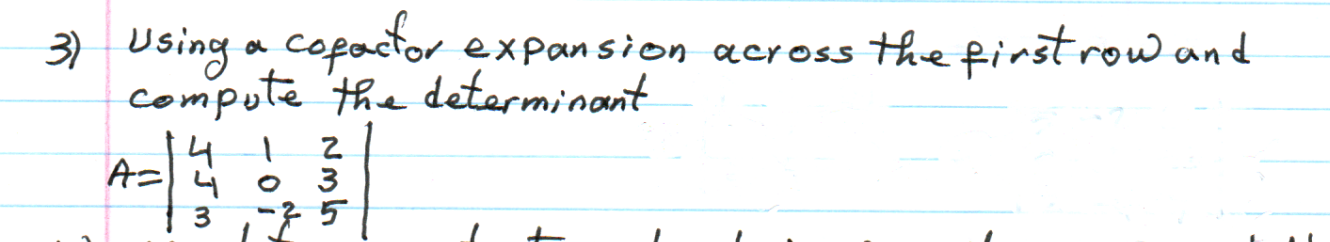 3) Using a cofactor expansion across the first row and
compute the determinant
A= | 4 1 2 |
| 4 0 3 |
| 3 -2 5 |